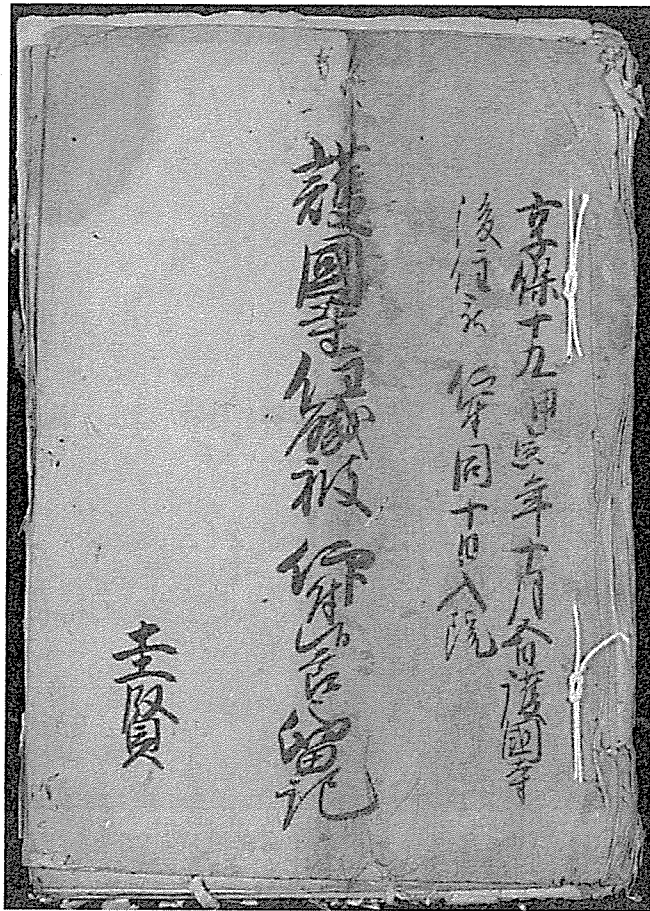 享保十九甲寅年十月 護國寺
後住被 仰付同十日入院
護國寺住職被 仰付 留記
圭賢